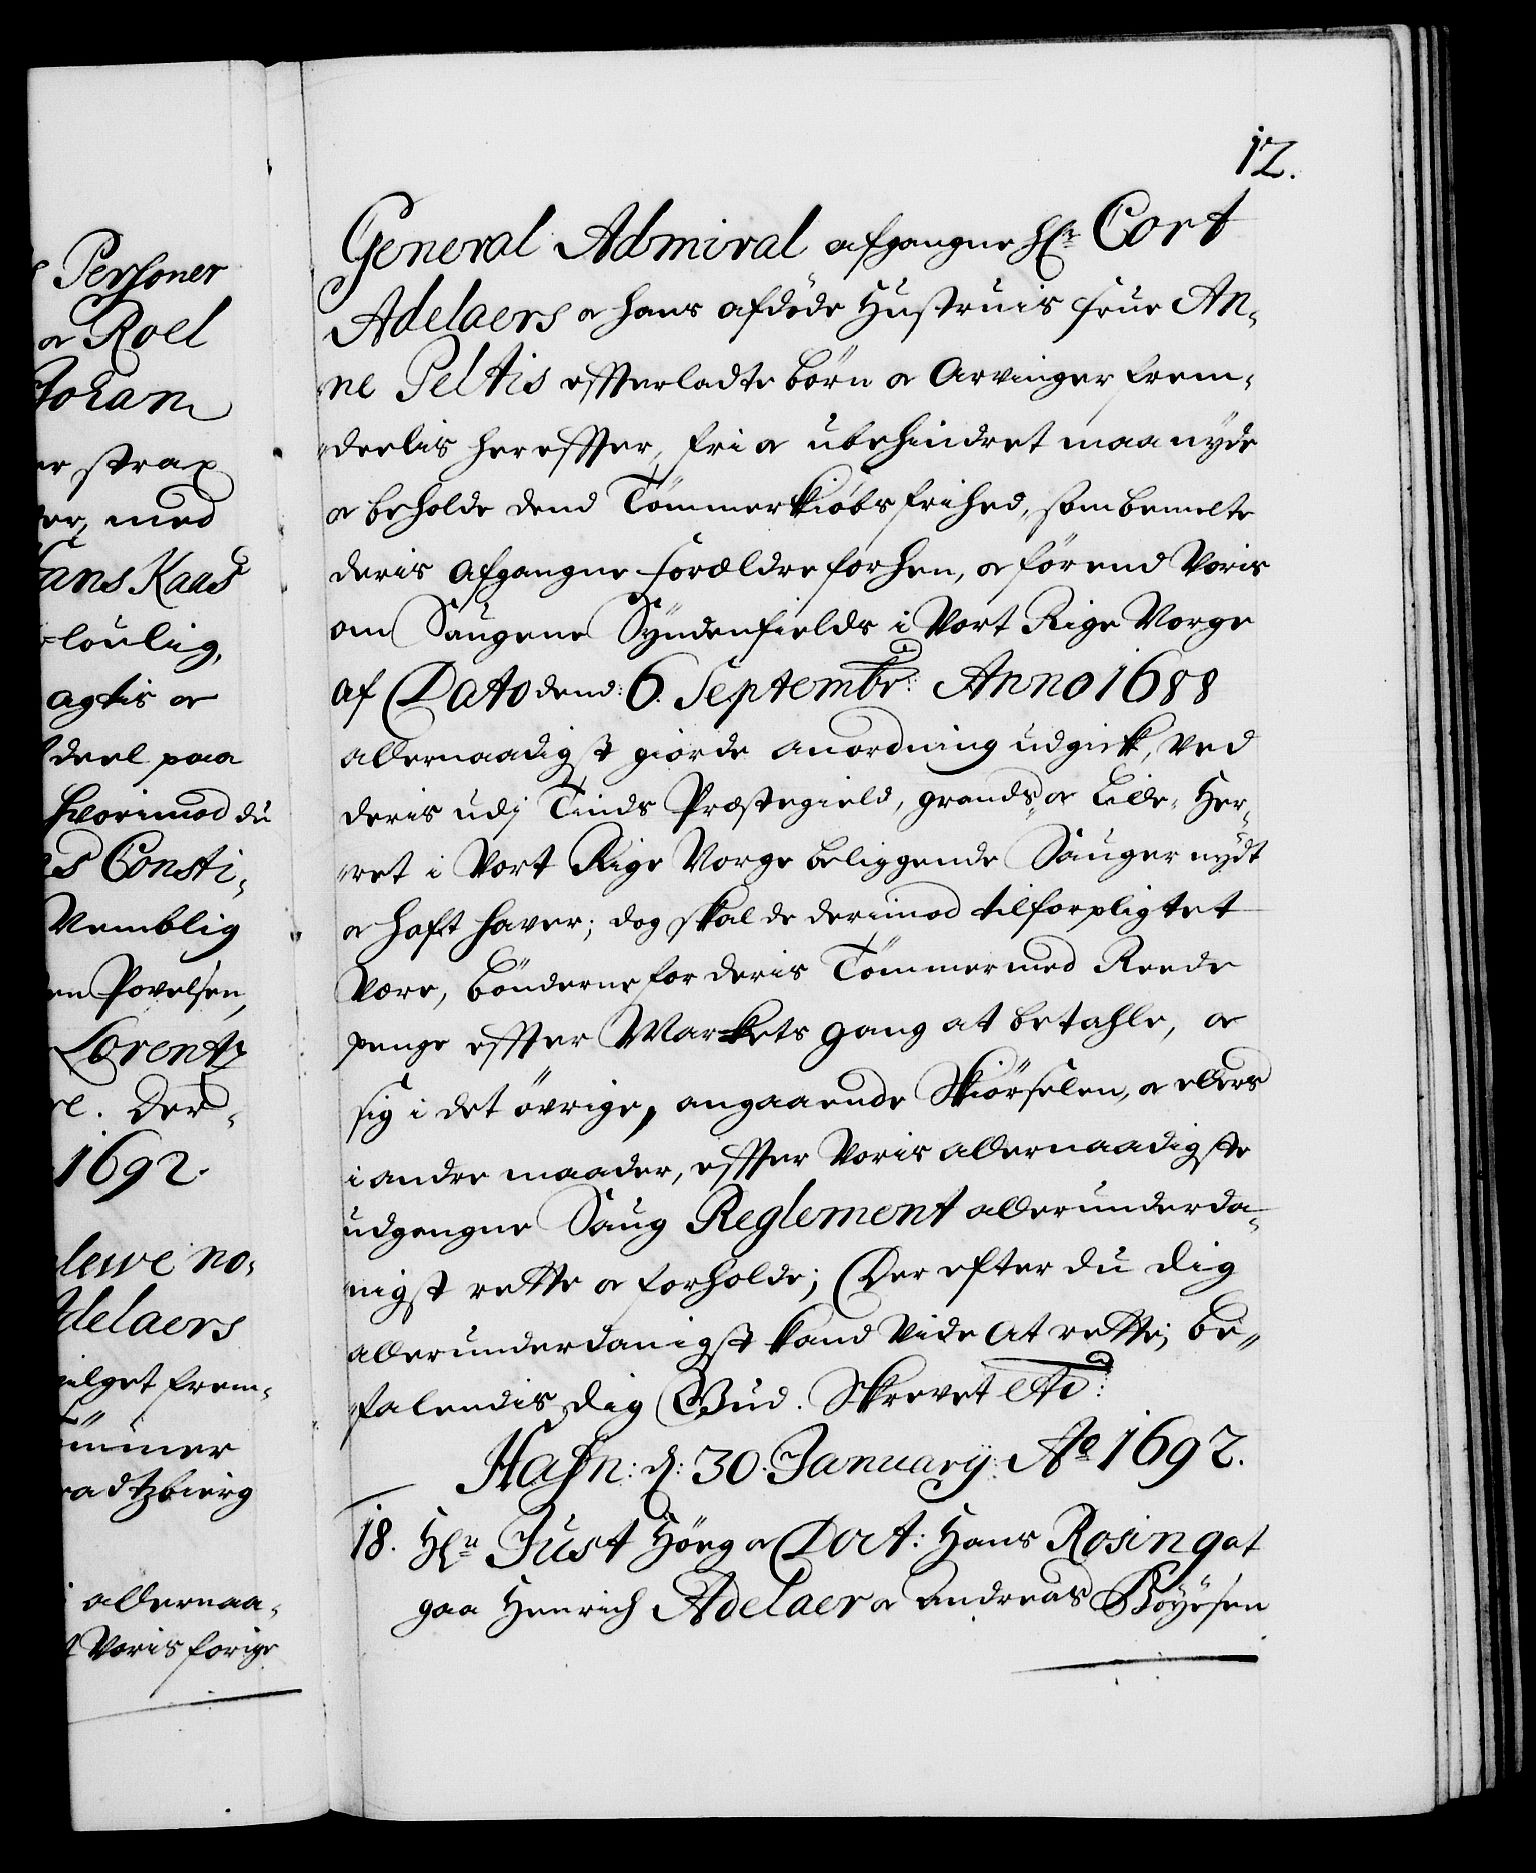 12.
General Admiral afgangne Hr: Cort
Adelaers oc hans afdøde Hustruis Frue An-
ne Peltis effterladte børn oc Arvinger frem-
deelis hereffter, fri oc ubehindret maa nyde
oc beholde dend Tömmerkiøbs frihed, som bemelte
deris afgangne forældre forhen, oc förend Voris
om Saugene Syndenfields i Vort Rige Norge
af Dato dend: 6. Septembr: Anno 1688
allernaadigst giorde anordning udgick, ved
deris udj Tinds Præstegield, Grands- oc Lille-Her-
ret i Vort Rige Norge beliggende Sauger nydt
oc haft haver; dog skal de derimod tilforpligtet
være, bönderne for deris Tömmer med Reede
penge effter Markets gang at betahle, oc
sig i det övrige, angaaende Skiörselen, oc ellers
i andre maader, effter Voris allernaadigste
udgangne Saug Reglement allerunderda-
nigst rette oc forholde; Der efter du dig
allerunderdanigst kand vide at rette; be-
falendis dig Gud. Skrevet etc:
Hafn: d: 30. January: Ao 1692.
18. Hr: Just Höeg oc Doct: Hans Rosing at
gaa Henrich Adelaer oc Andreas Böyesen
Personer
oc Roel
Johan
er strax
er, med
Hans Kaas
loulig,
agtis oc
deel paa
hvorimod du
Consti-
Nemblig
en Povelsen,
Lorentz
Der-
1692.
lewe no-
Adelaers
vilget frem-
ömmer
adtzbierg
allernaa-
t Voris forige